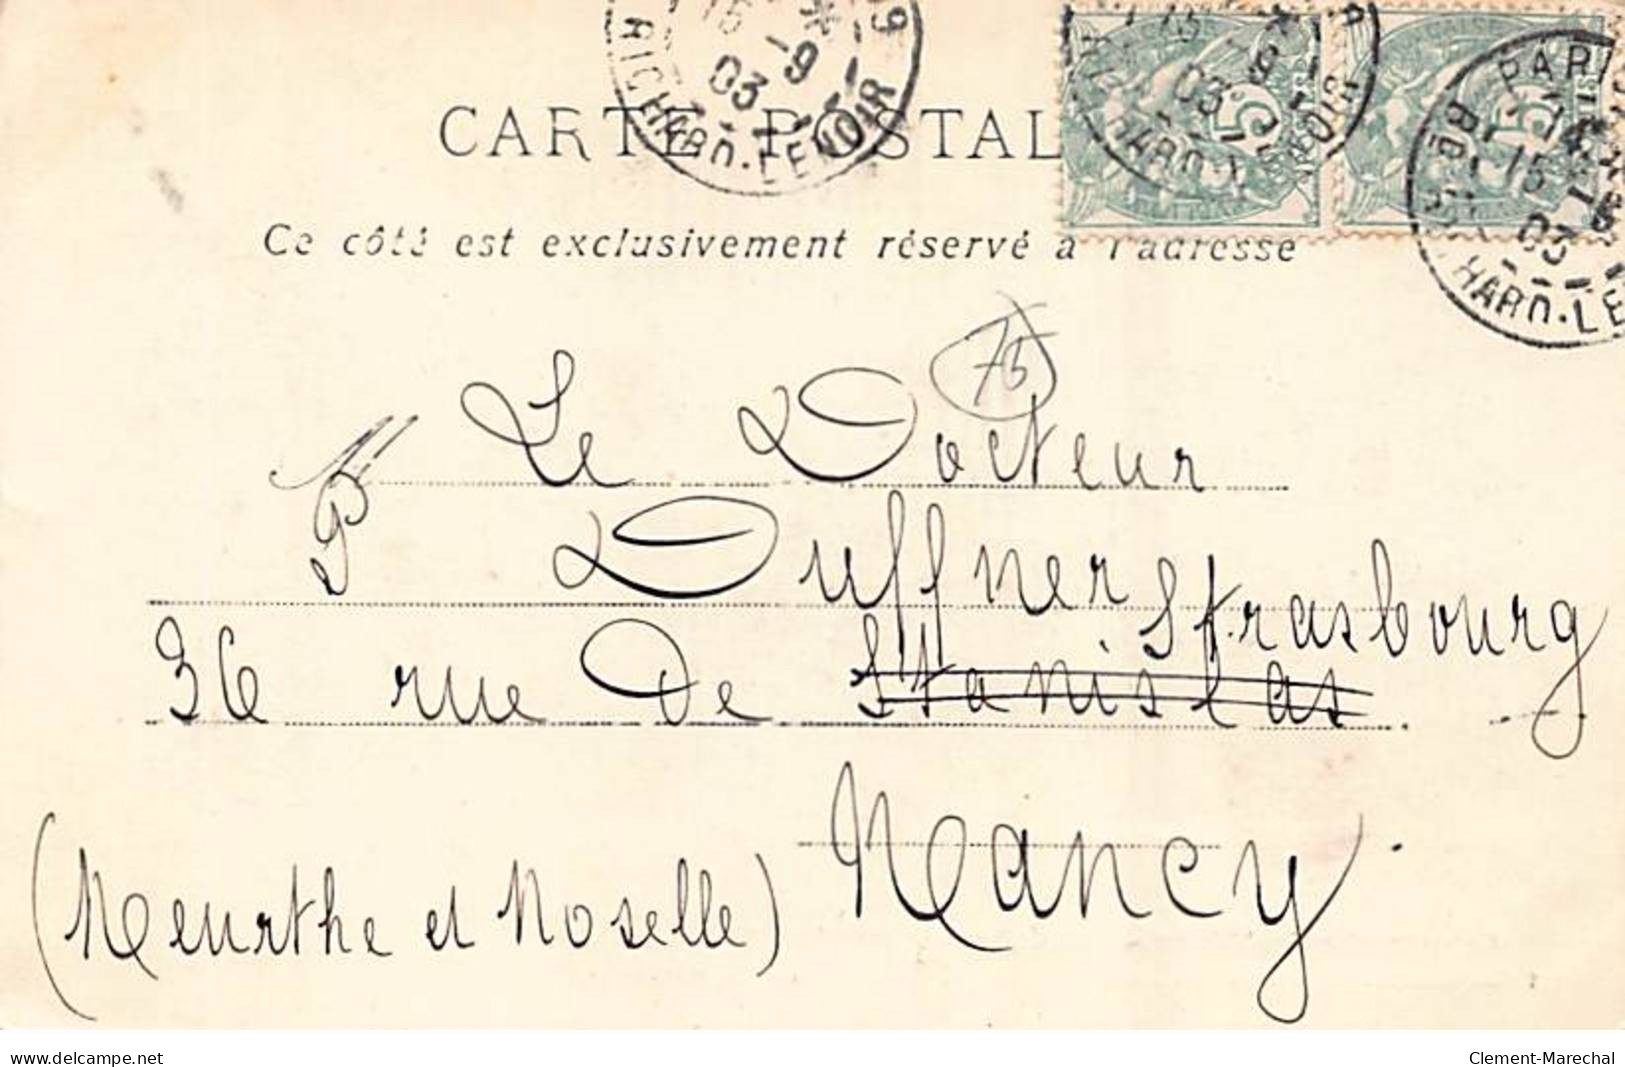 CARTE POSTAL
Ce côté est exclusivement réservé à l'adresse
75
Le Docteur
Duffner
Strasbourg
36 rue De Stanislas
Nancy.
(Meurthe et Moselle)
15
9
03
RICHARD-LENOIR
5
PARI
15
03
HARD-LE
www.delcampe.net
Clement-Marechal